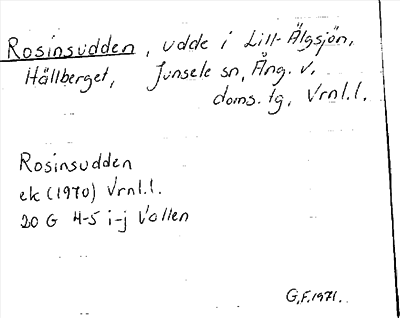 Rosinsudden, udde i Lill-Älgsjön,
Hällberget, Junsele sn, Ång. v.
doms. tg, Vrnl.l.
Rosinsudden
ek (1970) Vrnl.l.
20 G 4-5 i-j Vallen
G.F. 1971.